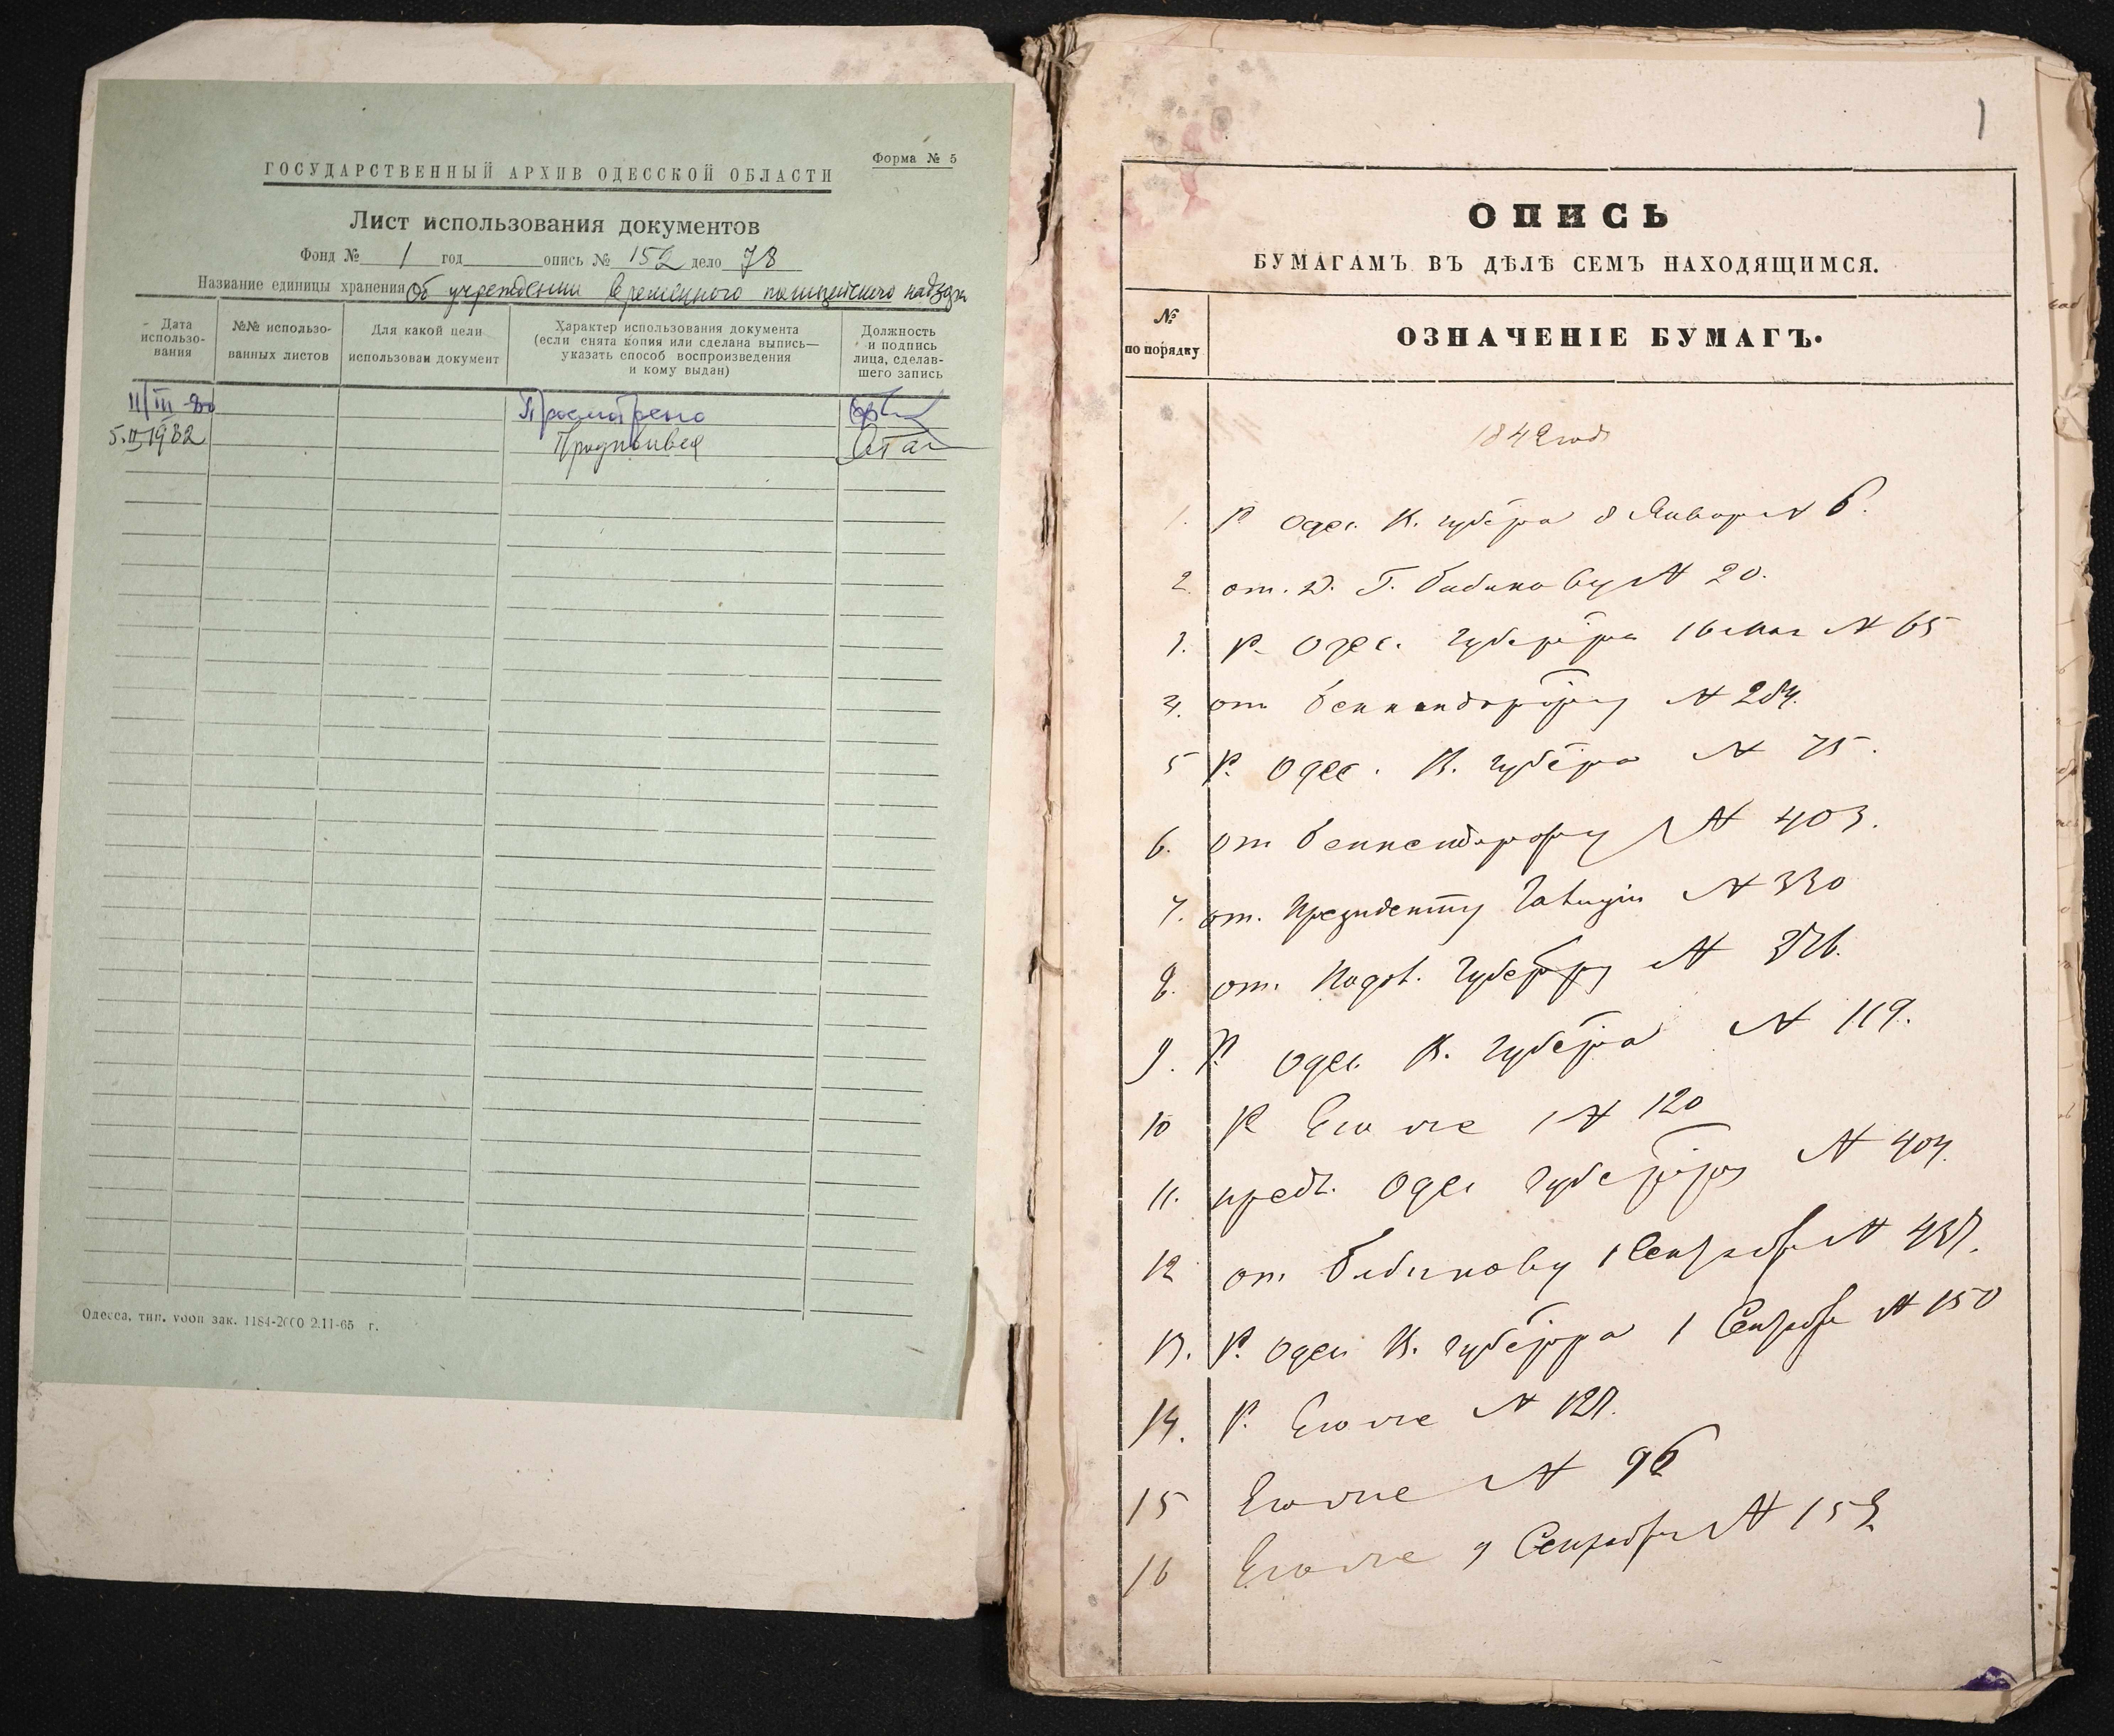 Форма № 5
ГОСУДАРСТВЕННЫЙ АРХИВ ОДЕССКОЙ ОБЛАСТИ
Лист использования документов
Фонд № 1 год опись № 152 дело 78
Название единицы хранения Об учреждении временного полицейского надзора
Дата использо-вания
№№ использо-ванных листов
Для какой цели использован документ
Характер использования документа
(если снята копия или сделана выпись—
указать способ воспроизведения
и кому выдан)
Должность
и подпись
лица, сделав-
шего запись
11/III-80 Просмотрено
5.II.1982
Одесса, тип. уооп зак. 1184-2000 2.11-65 г.
1
ОПИСЬ
БУМАГАМЪ ВЪ ДѢЛѢ СЕМЪ НАХОДЯЩИМСЯ.
№
по порядку
ОЗНАЧЕНІЕ БУМАГЪ.
1842 годъ
1. Р. Одес. В. губера 8 Январ N 6.
2. от. Д. Г. Бибикову N 20.
3. Р. Одес. губера 16 Мая N 65
4. от Беннендорфу N 284.
5 Р. Одес. В. губера N 75.
6. от Беннендорфу N 403.
7. от. Президенту N 330
8. от. Подол. Губерру N
9. Р. Одес. В. губера N 119.
10 Р Его же N 120
11. предл. Одес губеру N 404.
12 от Бибикову 1 Сентября N 437.
13. Р. Одес В. губерра 1 Сентяб N 150
14. Р. Его же N 127.
15 Его же N 96
16 Его же 9 Сентября N 153